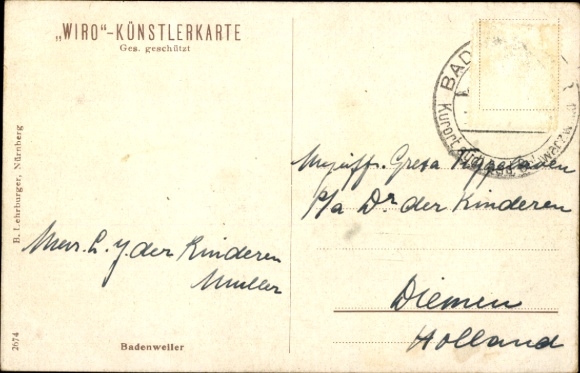 „WIRO“-KÜNSTLERKARTE
Ges. geschützt
B. Lehrburger, Nürnberg
2674
Mevr. L. J. der Kinderen
Muller
Badenweiler
BAD
Kurort
Schwarzw
Mejuffr. Greta
p/a Dr der Kinderen
Diemen
Holland